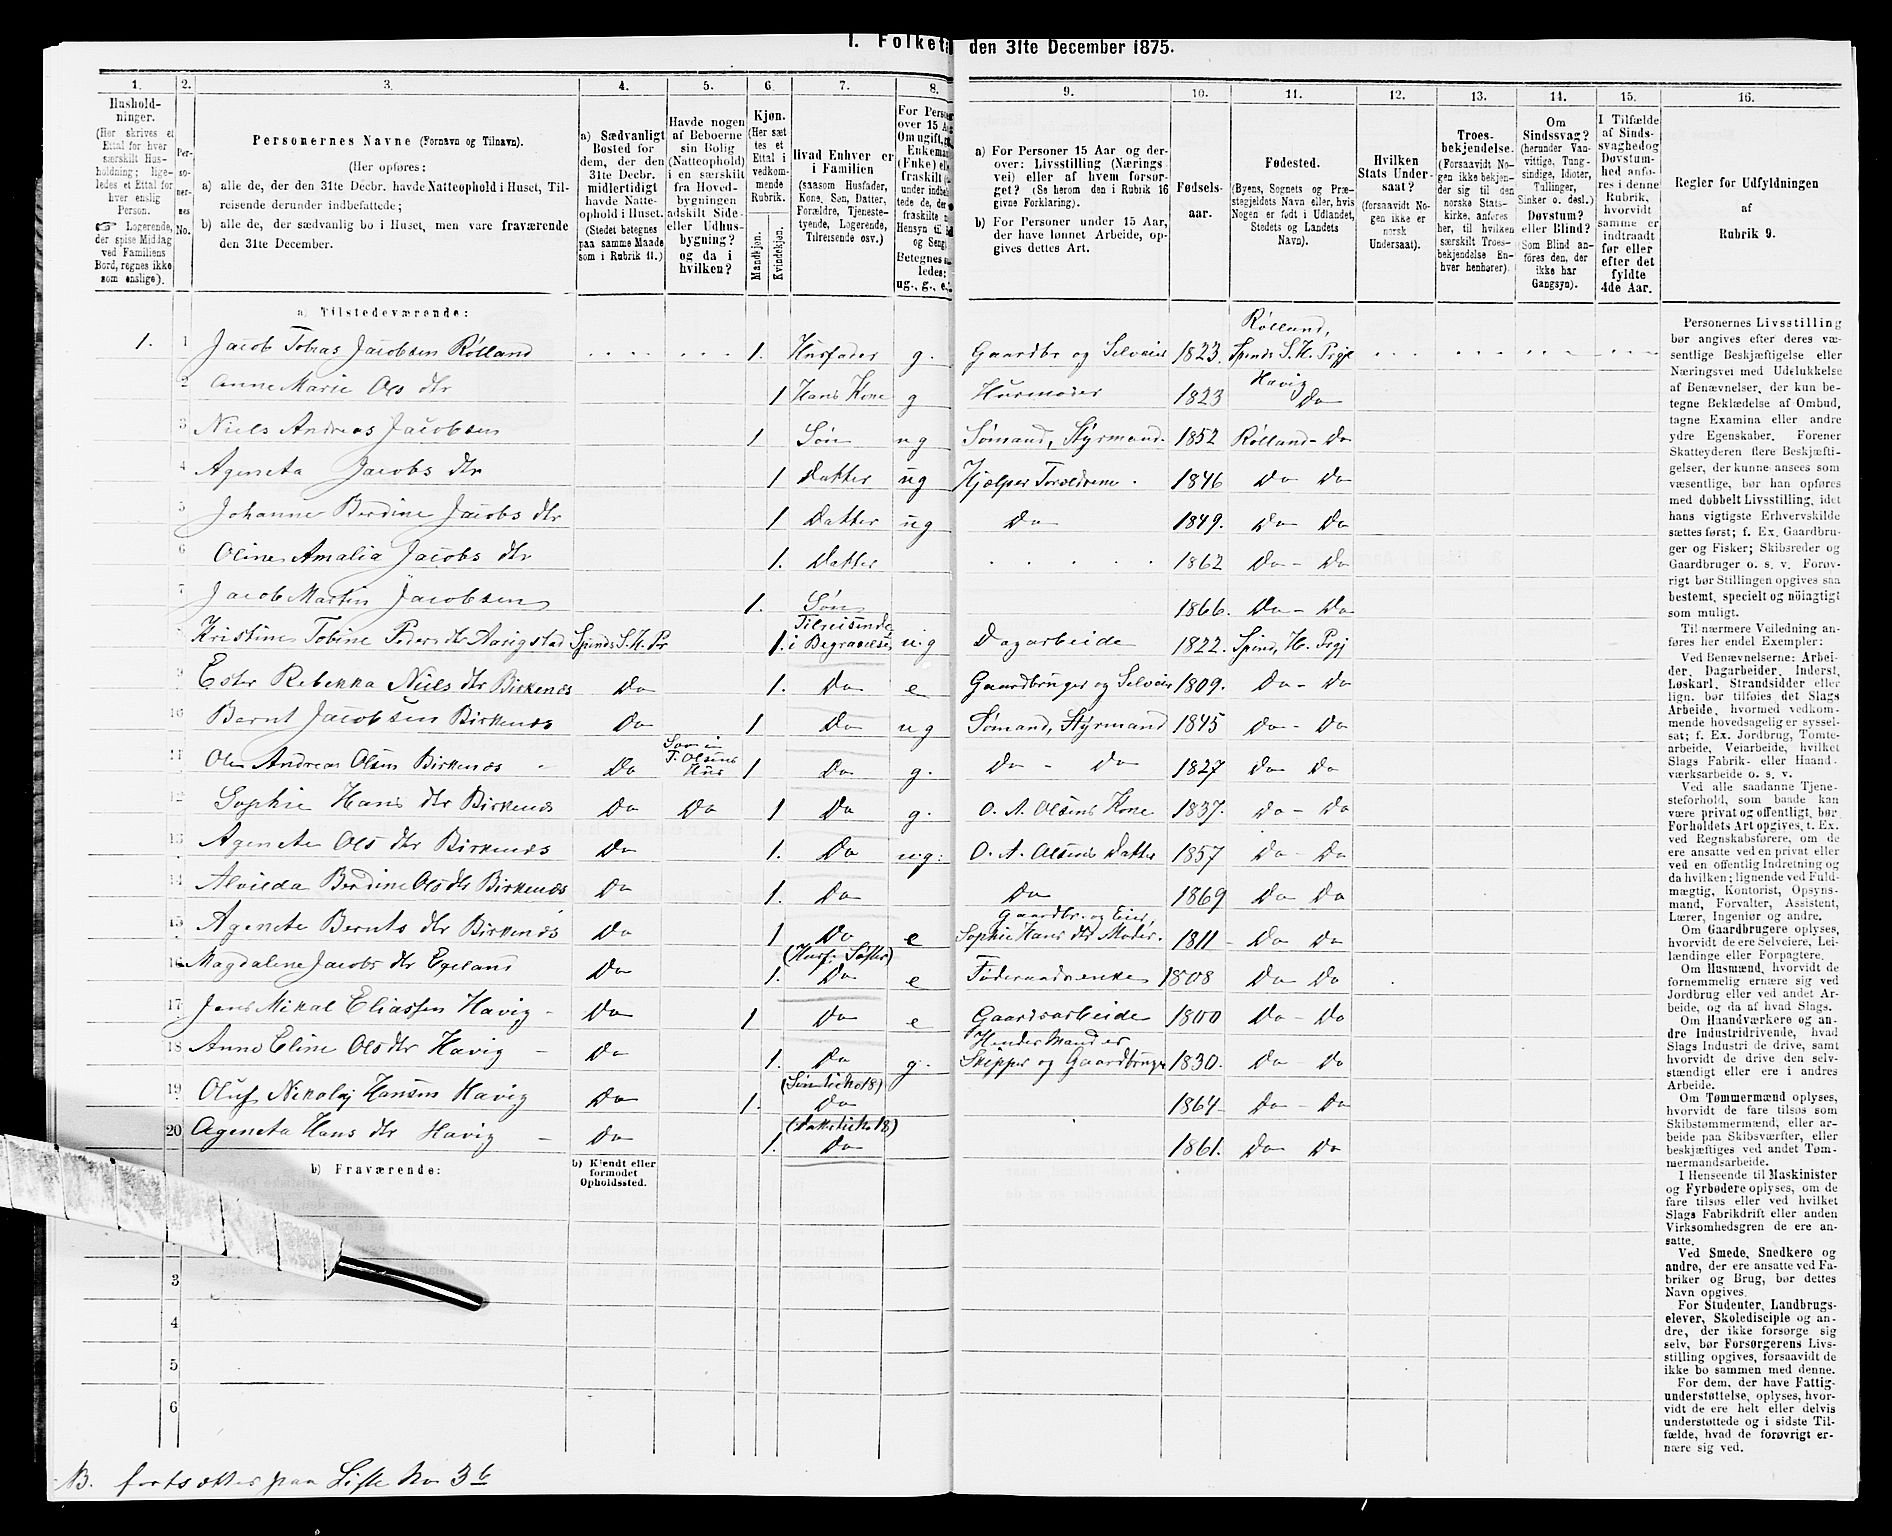 I. Folketa den 31te December 1875.
1.
Hushold-
ninger.
(Her skrives et
Ettal for hver
særskilt Hus-
holdning; lige-
ledes et Ettal for
hver enslig
Person.
☞ Logerende,
der spise Middag
ved Familiens
Bord, regnes ikke
som enslige).
2.
Per-
so-
ner-
nes
No.
3.
Personernes Navne (Fornavn og Tilnavn).
(Her opføres:
a) alle de, der den 31te Decbr. havde Natteophold i Huset, Til-
reisende derunder indbefattede;
b) alle de, der sædvanlig bo i Huset, men vare fraværende
den 31te December.
4.
a) Sædvanligt
Bosted for
dem, der den
31te Decbr.
midlertidigt
havde Natte-
ophold i Huset.
(Stedet betegnes
paa samme Maade
som i Rubrik 11.)
5.
Havde nogen
af Beboerne
sin Bolig
(Natteophold)
i en særskilt
fra Hoved-
bygningen
adskilt Side-
eller Udhus-
bygning?
og da i
hvilken?
6.
Kjøn.
(Her sæt-
tes et
Ettal i
vedkom-
mende
Rubrik.
Mandkjøn.
Kvindekjøn.
7.
Hvad Enhver er
i Familien
(saasom Husfader,
Kone, Søn, Datter,
Forældre, Tjeneste-
tyende, Logerende,
Tilreisende osv.)
8.
For Perso
over 15 A
Om ugift,
Enkema
(Enke) el
fraskilt
under indb
tede de, der
fraskilte
Hensyn til
og Seng
Betegnes
ledes:
ug., g., e.
9.
a) For Personer 15 Aar og der-
over: Livsstilling (Nærings
vei) eller af hvem forsør-
get? (Se herom den i Rubrik 16
givne Forklaring).
b) For Personer under 15 Aar,
der have lønnet Arbeide, op-
gives dettes Art.
10.
Fødsels-
aar.
11.
Fødested.
(Byens, Sognets og Præ-
stegjeldets Navn eller, hvis
Nogen er født i Udlandet,
Stedets og Landets
Navn).
12.
Hvilken
Stats Under-
saat?
(forsaavidt No-
gen ikke er
norsk
Undersaat).
13.
Troes-
bekjendelse.
(Forsaavidt No-
gen ikke bekjen-
der sig til den
norske Stats-
kirke, anføres
her, til hvilken
særskilt Troes-
bekjendelse En-
hver henhører).
14.
Om
Sindssvag?
(herunder Van-
vittige, Tung-
sindige, Idioter,
Tullinger,
Sinker o. desl.)
Døvstum?
eller Blind?
(Som Blind an-
føres den, der
ikke har
Gangsyn).
15.
I Tilfælde
af Sinds-
svaghed og
Døvstum-
hed anfø-
res i denne
Rubrik,
hvorvidt
samme er
indtraadt
før eller
efter det
fyldte
4de Aar.
16.
Regler for Udfyldningen
af
Rubrik 9.
a) Tilstedeværende:
1. 1 Jacob Tobias Jacobsen Rølland 1. Husfader g. Gaardbr og Selveier 1823. Rølland, Spinds S. H. Prgj
2 Anne Marie Ols dtr 1 Hans Kone g Husmoder 1823 Havig Do
3 Niels Andreas Jacobsen 1 Søn ug Sømand, Styrmand. 1852 Rølland - Do
4 Ageneta Jacobs dtr 1 Datter ug Hjælper Forældrene. 1846 Do Do
5 Johanne Berdine Jacobs dtr 1 Datter ug Do 1849. Do Do
6 Oline Amalia Jacobs dtr 1. Datter 1862 Do - Do
7 Jacob Martin Jacobsen 1. Søn 1866. Do - Do
Kristine Tobine Peders dtr Aavigstad Spinds S. H. Pr 1. Tilreisende i Begravelse ug Dagarbeide 1822. Spind, H. Prgj
9 Ester Rebekka Niels dtr Birkenæs Do 1. Do e Gaardbruger og Selveier 1809. Do - Do
10 Bernt Jacobsen Birkenæs Do 1 Do ug Sømand, Styrmand 1845 Do - Do
11 Ole Andreas Olsen Birkenæs - Do Sov i T. Olsens Hus 1 Do g. Do - Do 1827 Do Do
12 Sophie Hans dtr Birkenæs Do Do 1 Do g. O. A. Olsens Kone 1837. Do - Do
13 Agenete Ols dtr Birkenæs Do 1. Do ug. O. A. Olsens Datter 1857 Do - Do
14 Alvilda Berdine Ols dtr Birkenæs Do 1. Do Do 1869 Do Do
15 Agenete Bernts dtr Birkenæs Do 1 Do e Gaardbr. og Eier, Sophie Hans dtr Moder. 1811 - Do Do
16 Magdalene Jacobs dtr Egeland Do 1. (Husf. Søster) Do e Føderaadsenke 1808 Do Do
17 Jens Mikal Eliassen Havig - Do 1 Do e Gaardsarbeide 1800 Do - Do
18 Anne Eline Ols dtr Havig - Do 1. Do g. Hendes Mand er Skipper og Gaardbruger 1830. Do - Do
19 Oluf Nikolaj Hansen Havig Do 1. (Søn til No 18) Do 1864 - Do - Do
20 Ageneta Hans dtr Havig - Do 1. (Datter til No 18) Do 1861. Do Do
b) Fraværende:
b) Kjendt eller
formodet
Opholdssted.
3
4
5
6
Personernes Livsstilling
bør angives efter deres væ-
sentlige Beskjæftigelse eller
Næringsvei med Udelukkelse
af Benævnelser, der kun be-
tegne Beklædelse af Ombud,
tagne Examina eller andre
ydre Egenskaber. Forener
Skatteyderen flere Beskjæfti-
gelser, der kunne ansees som
væsentlige, bør han opføres
med dobbelt Livsstilling, idet
hans vigtigste Erhvervskilde
sættes først; f. Ex. Gaardbru-
ger og Fisker; Skibsreder og
Gaardbruger o. s. v. Forøv-
rigt bør Stillingen opgives saa
bestemt, specielt og nöiagtigt
som muligt.
Til nærmere Veiledning an-
føres her endel Exempler:
Ved Benævnelserne: Arbei-
der, Dagarbeider, Inderst,
Løskarl, Strandsidder eller
lign. bør tilføies det Slags
Arbeide, hvormed vedkom-
mende hovedsagelig er syssel-
sat; f. Ex. Jordbrug, Tomte-
arbeide, Veiarbeide, hvilket
Slags Fabrik- eller Haand-
værksarbeide o. s. v.
Ved alle saadanne Tjene-
steforhold, som baade kan
være privat og offentligt, bør
Forholdets Art opgives, t. Ex.
ved Regnskabsførere, om de
ere ansatte ved en privat eller
ved en offentlig Indretning og
da hvilken; lignende ved Fuld-
mægtig, Kontorist, Opsyns-
mand, Forvalter, Assistent,
Lærer, Ingeniør og andre.
Om Gaardbrugere oplyses,
hvorvidt de ere Selveiere, Lei-
lændinge eller Forpagtere.
Om Husmænd, hvorvidt de
fornemmelig ernære sig ved
Jordbrug eller ved andet Ar-
beide, og da af hvad Slags.
Om Haandværkere og an-
dre Industridrivende, hvad
Slags Industri de drive, samt
hvorvidt de drive den selv-
stændigt eller ere i andres
Arbeide.
Om Tømmermænd oplyses,
hvorvidt de fare tilsøs som
Skibstømmermænd, eller ar-
beide paa Skibsværfter, eller
beskjæftiges ved andet Tøm-
mermandsarbeide.
I Henseende til Maskinister
og Fyrbødere oplyses, om de
fare tilsøs eller ved hvilket
Slags Fabrikdrift eller anden
Virksomhedsgren de ere an-
satte.
Ved Smede, Snedkere og
andre, der ere ansatte ved Fa-
briker og Brug, bør dettes
Navn opgives.
For Studenter, Landbrugs-
elever, Skoledisciple og an-
dre, der ikke forsørge sig
selv, bør Forsørgerens Livs-
stilling opgives, forsaavidt de
ikke bo sammen med denne.
For dem, der have Fattig-
understøttelse, oplyses, hvor-
vidt de ere helt eller delvis
understøttede og i sidste Til-
fælde, hvad de forøvrigt er-
nære sig ved.
NB. fortsættes paa Liste No 3 b